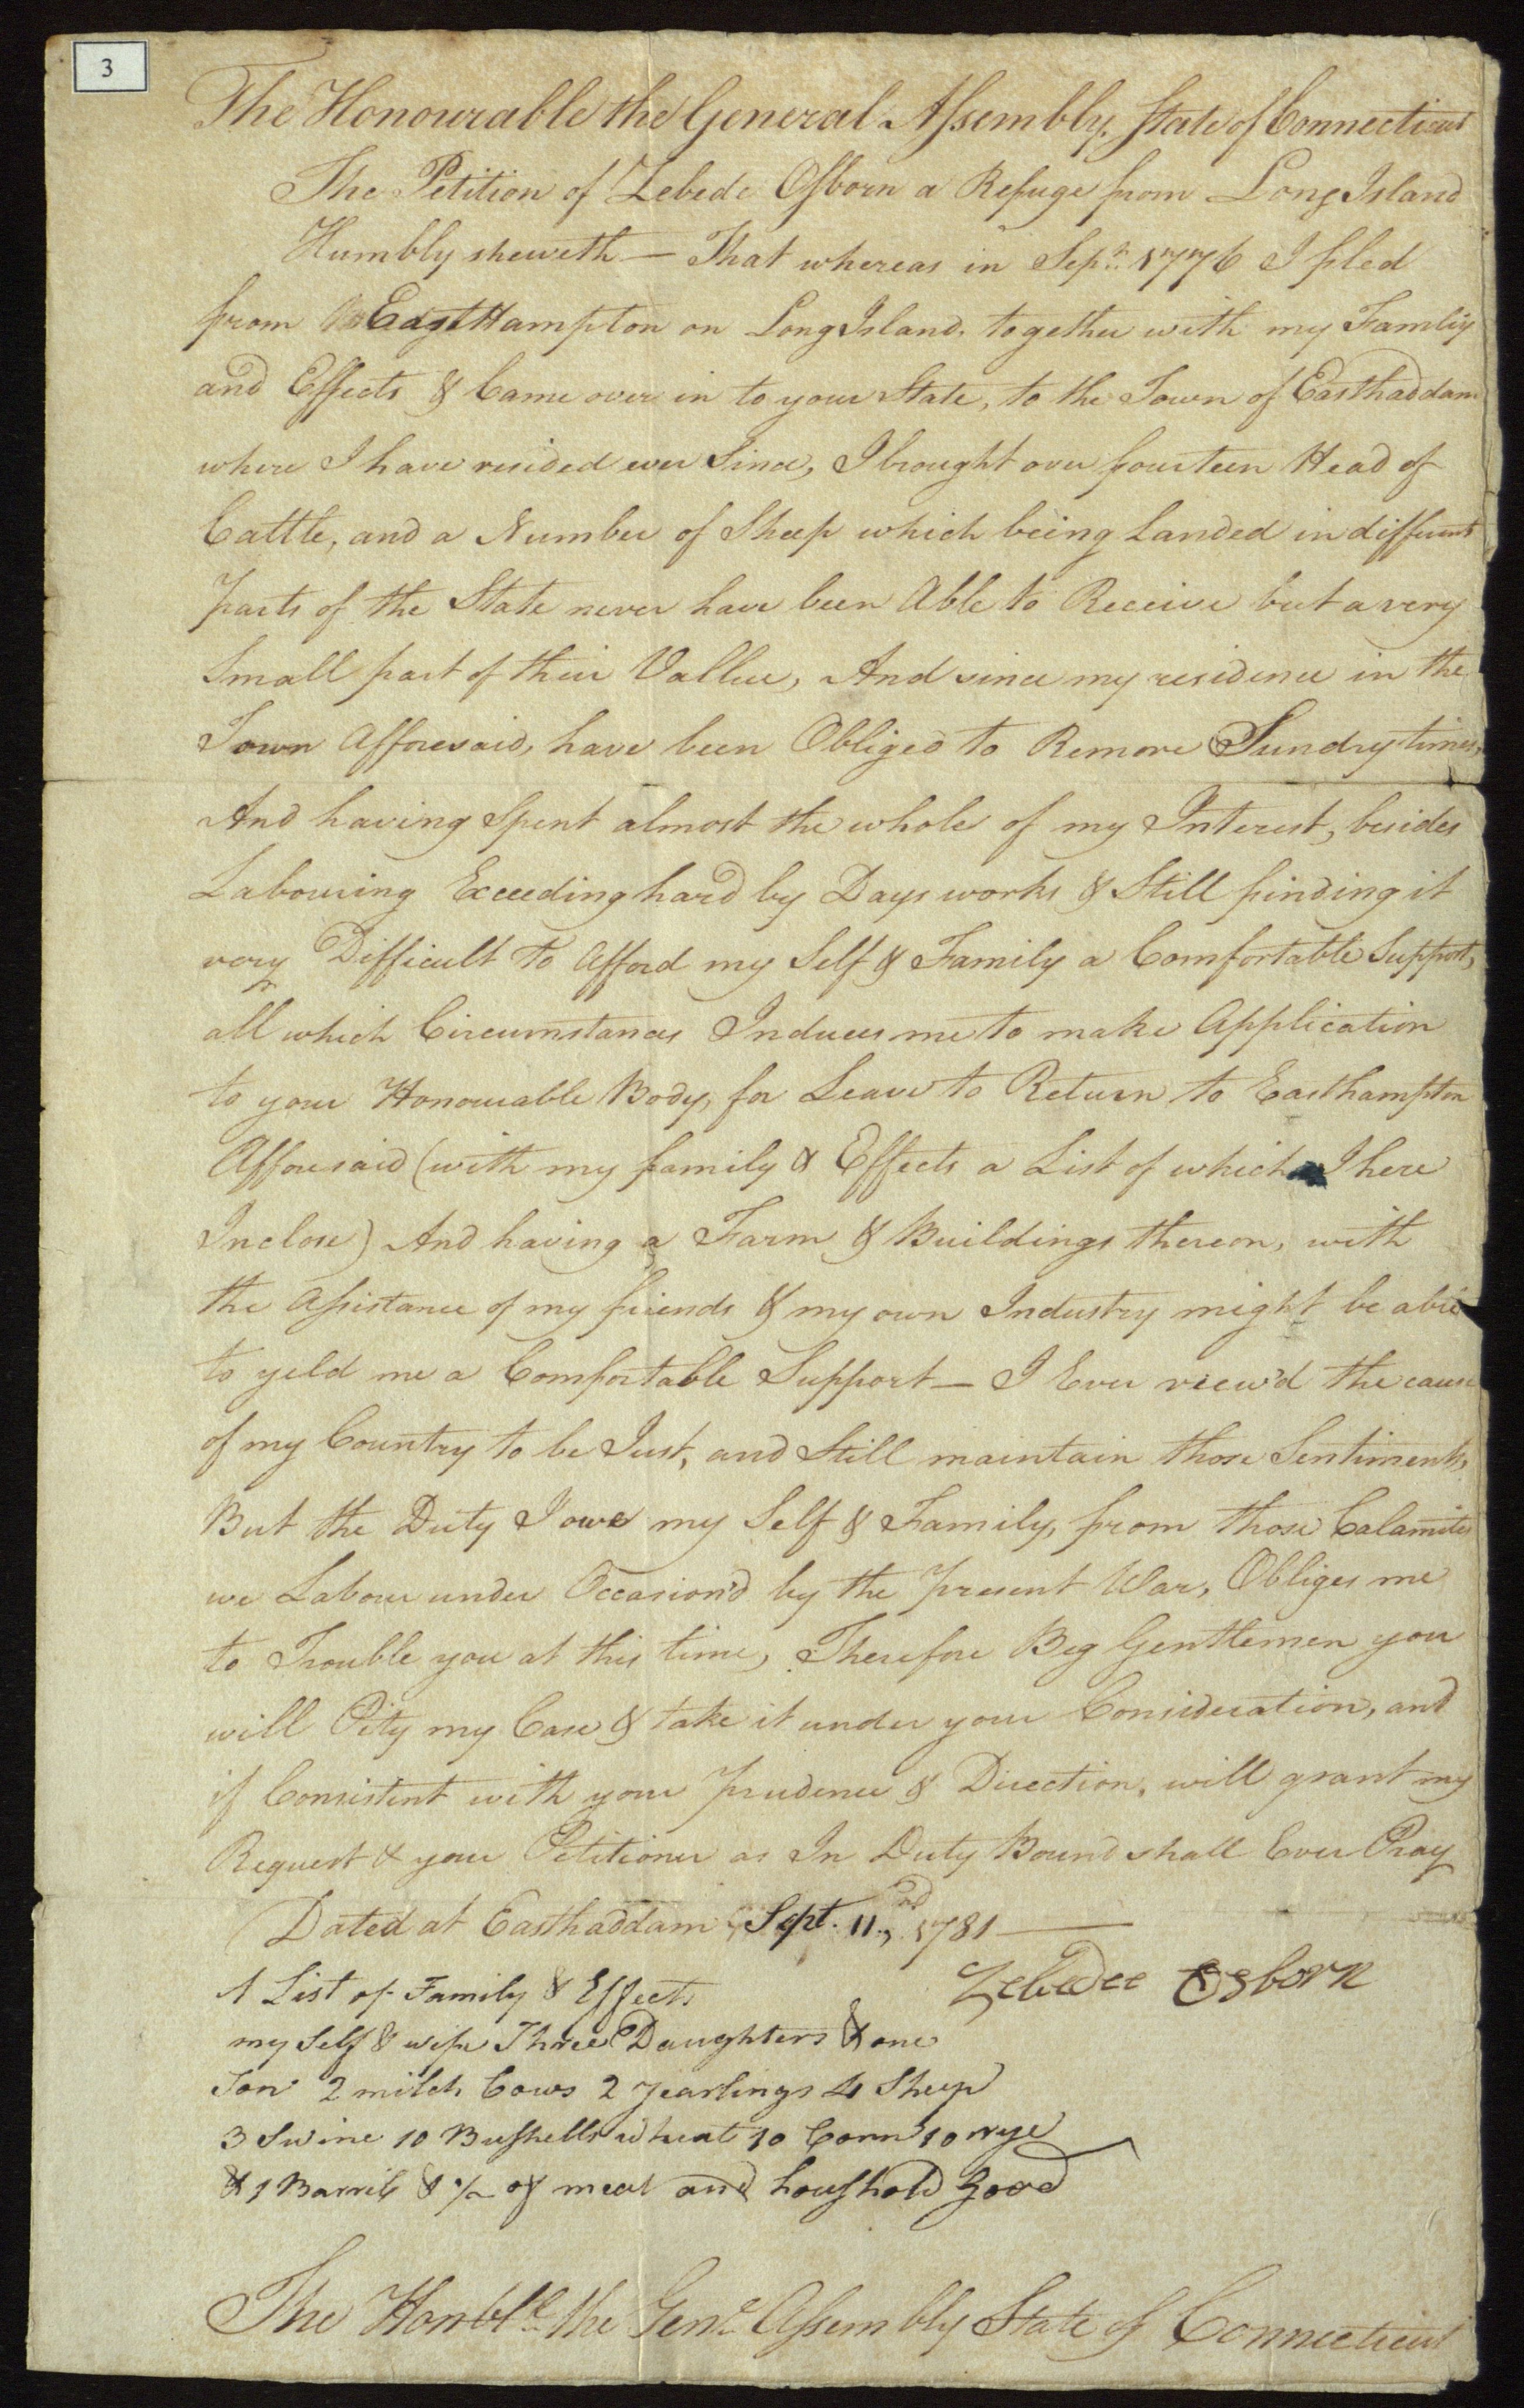 3
The Honourable the General Assembly, State of Connecticut
The Petition of Zebede Osborn a Refuge from Long Island
Humbly sheweth — That whereas in Sepr. 1776 I fled
from EastHampton on Long Island, together with my Famliy
and Effects & Came over in to your State, to the Town of Easthaddam
where I have resided ever Since, I brought over fourteen Head of
Cattle, and a Number of Sheep which being Landed in different
parts of the State never have been Able to Receive but a very
Small part of their Vallue, And since my residence in the
Town Afforesaid, have been Obliged to Remove Sundry times,
And having Spent almost the whole of my Interest, besides
Labouring Exceeding hard by Days works & Still finding it
very Difficult to Afford my Self & Family a Comfortable Support,
all which Circumstances Induces me to make Application
to your Honourable Body, for Leave to Return to Easthampton
Afforesaid (with my family & Effects a List of which I here
Inclose) And having a Farm & Buildings thereon, with
the Assistance of my friends & my own Industry might be able
to yeld me a Comfortable Support — I Ever view'd the cause
of my Country to be Just, and Still maintain those Sentiments,
But the Duty I owe my Self & Family, from those Calamities
we Labour under Occasion'd by the present War, Obliges me
to Trouble you at this time, Therefore Beg Gentlemen you
will Pity my Case & take it under your Consideration, and
if Consistent with your prudence & Direction, will grant my
Request & your Petitioner as In Duty Bound shall Ever Pray
Dated at Easthaddam Sept. 11., 1781 —
Zebedee Osborn
A List of Family & Effects
my Self & wife Three Daughters & one
Son 2 milch Cows 2 yearlings 4 Sheep
3 Swine 10 Bushells wheat 10 Corn 10 rye
& 1 Barril & 1/2 of meat and houshold Good
The Honble. the Genl. Assembly State of Connecticut